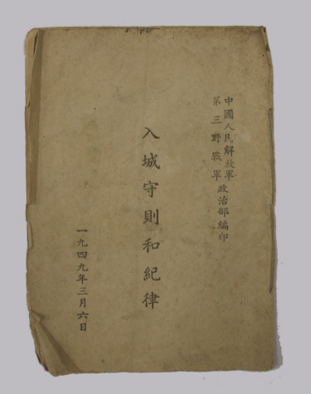 中國人民解放軍
第三野戰軍政治部編印
入城守則和紀律
一九四九年三月六日